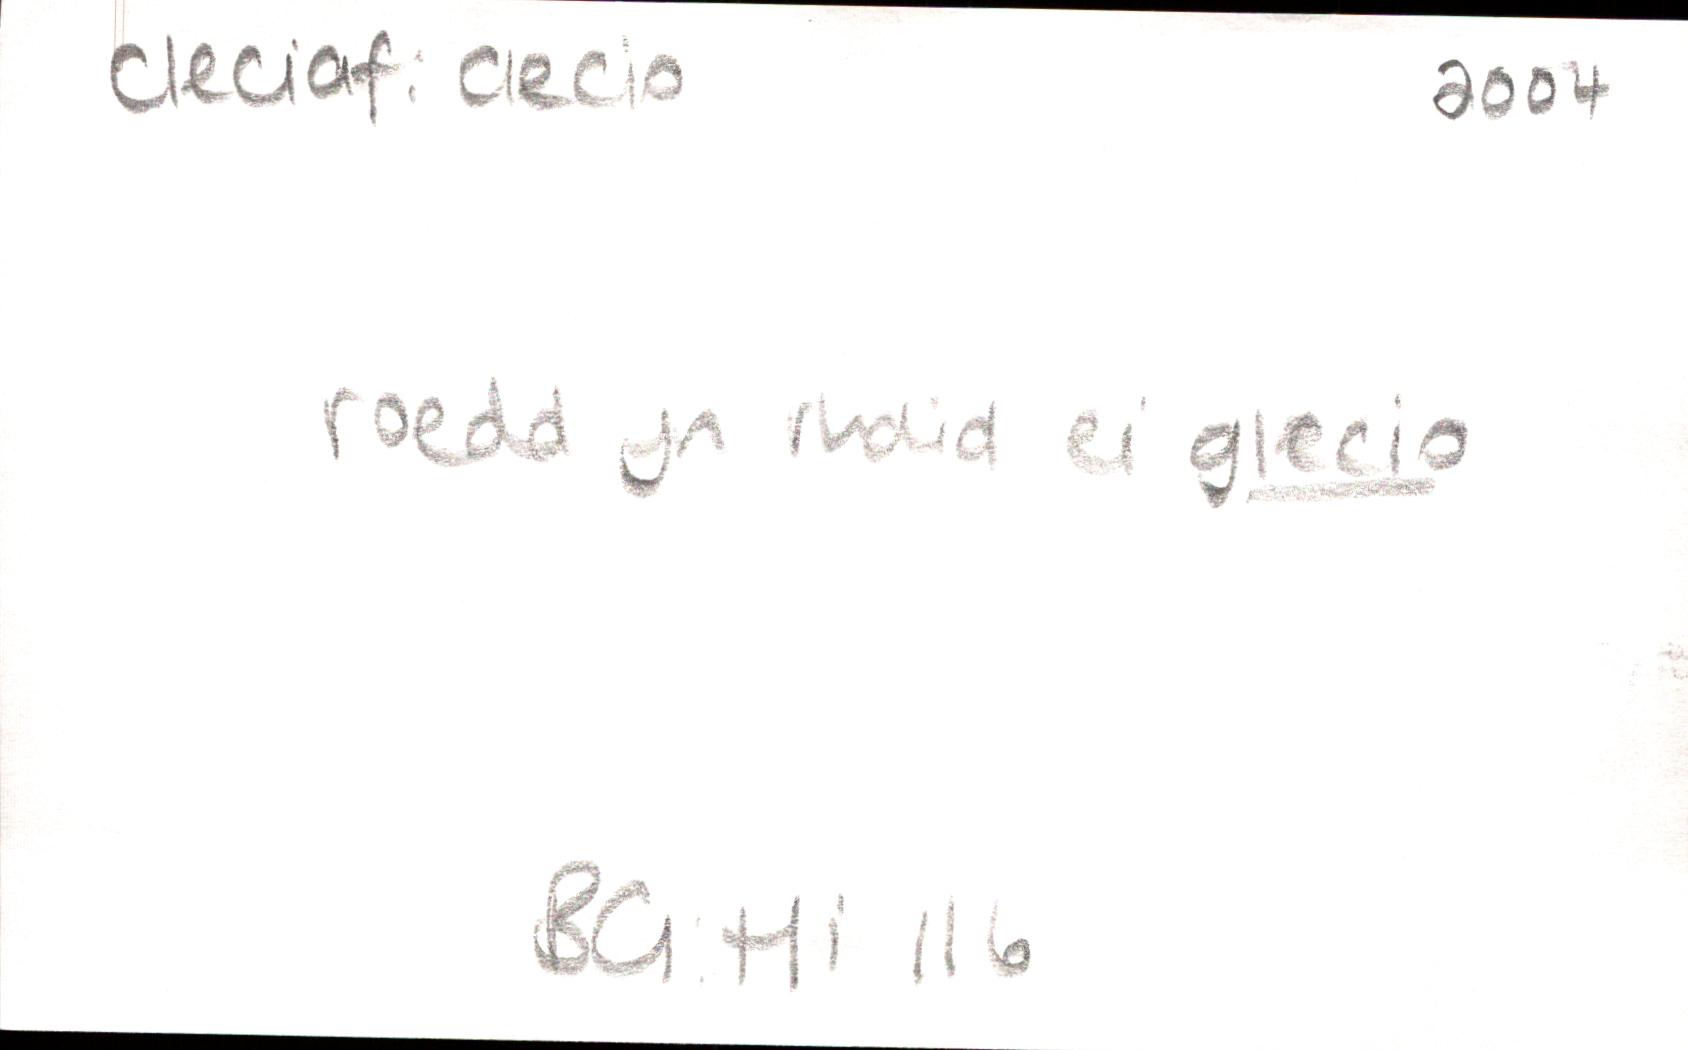 cleciaf: clecio 2004
roedd yn rhaid ei glecio
BG: Hi 116